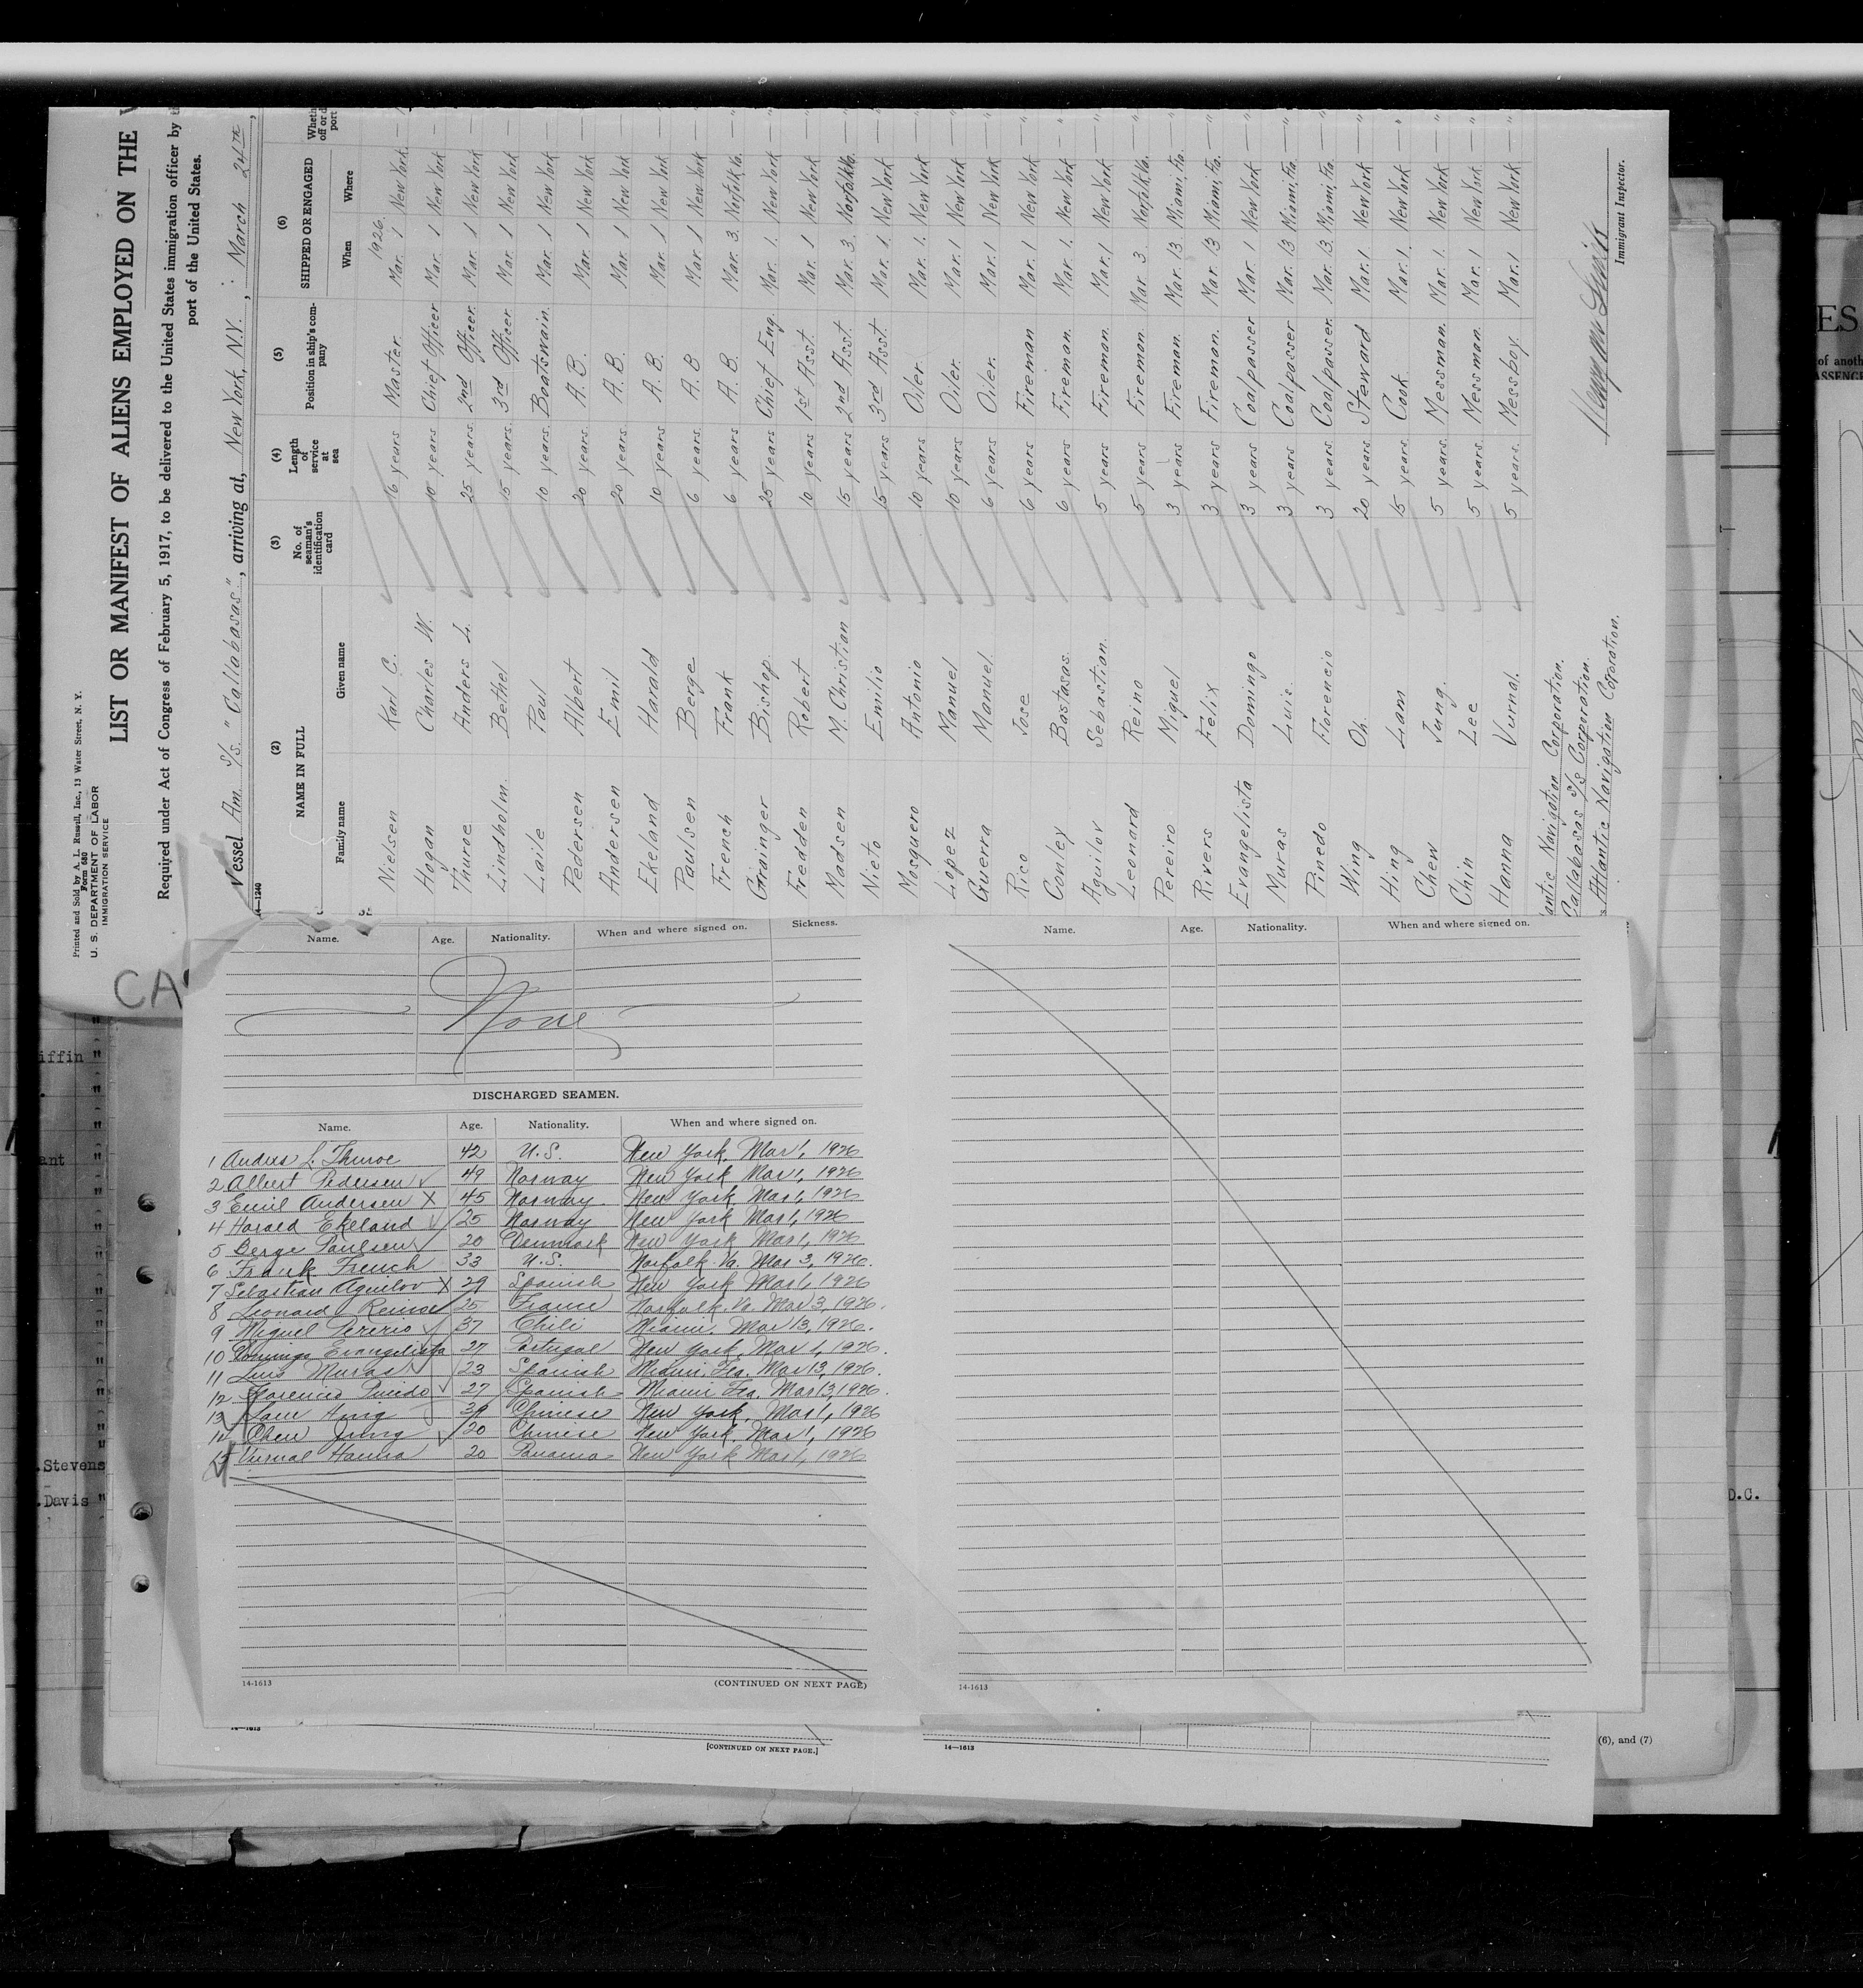 Printed and Sold by A. L. Russell, Inc., 13 Water Street, N. Y.
Form 680
U. S. DEPARTMENT OF LABOR
IMMIGRATION SERVICE
LIST OR MANIFEST OF ALIENS EMPLOYED ON THE
Required under Act of Congress of February 5, 1917, to be delivered to the United States immigration officer by
port of the United States.
Vessel Am. S/S. "Callabasas", arriving at, New York, N.Y., March 24TH,
14-1240
(2) (3) (4) (5) (6)
NAME IN FULL No. of seaman's identification card Length of service at sea Position in ship's company SHIPPED OR ENGAGED
Family name Given name When Where
1926
Nielsen Karl C. 16 years Master. Mar. 1 New York. —
Hogan Charles W. 10 years Chief Officer Mar. 1 New York —
Thuroe Anders L. 25 years 2nd Officer. Mar. 1 New York —
Lindholm. Bethel 15 years. 3rd Officer Mar. 1 New York —
Laile Paul 10 years. Boatswain. Mar. 1 New York. —
Pedersen Albert 20 years. A. B. Mar. 1 New York —
Andersen Emil 20 years. A. B. Mar. 1 New York —
Ekeland Harald 10 years A. B. Mar. 1 New York —
Paulsen Berge 6 years. A. B Mar. 1 New York —
French Frank 6 years A. B. Mar. 3. Norfolk, Va. — "
Grainger Bishop. 25 years Chief Eng. Mar. 1. New York — "
Fredden Robert 10 years 1st Asst. Mar. 1 New York — "
Madsen M. Christian 15 years 2nd Asst. Mar. 3. Norfolk Va. — "
Nieto Emilio 15 years 3rd Asst. Mar. 1. New York — "
Mosquero Antonio 10 years Oiler. Mar. 1. New York — "
Lopez Manuel 10 years Oiler. Mar. 1 New York — "
Guerra Manuel. 6 years Oiler. Mar. 1 New York — "
Rico Jose 6 years Fireman Mar. 1 New York — "
Conley Bastasas. 6 years Fireman. Mar. 1. New York — "
Aguilov Sebastian. 5 years Fireman. Mar. 1 New York — "
Leonard Reino 5 years Fireman. Mar. 3. Norfolk, Va. — "
Pereiro Miguel 3 years Fireman. Mar. 13 Miami, Fla. — "
Rivers Felix 3 years Fireman. Mar. 13 Miami, Fla. — "
Evangelista Domingo 3 years Coalpasser Mar. 1 New York — "
Muras Luis. 3 years Coalpasser Mar. 13 Miami, Fla. — "
Pinedo Florencio 3 years. Coalpasser. Mar. 13. Miami, Fla. — "
Wing Oh. 20 years Steward Mar. 1. New York — "
Hing Liam 15 years. Cook Mar. 1. New York — "
Chew Jung. 5 years. Messman. Mar. 1. New York — "
Chin Lee 5 years. Messman. Mar. 1 New York — "
Hanna Vurnal. 5 years. Messboy. Mar. 1 New York — "
antic Navigation Corporation.
Callabasas S/S Corporation.
Atlantic Navigation Corporation.
Immigrant Inspector.
Name. Age. Nationality. When and where signed on. Sickness.
None
DISCHARGED SEAMEN.
Name. Age. Nationality. When and where signed on.
1 Andres L. Thuroe 42 U.S. New York, Mar 1, 1926
2 Albert Pedersen 49 Norway New York Mar 1, 1926
3 Emil Andersen X 45 Norway. New York. Mar 1, 1926
4 Harold Ekeland 25 Norway New York Mar 1, 1926
5 Berge Paulsen 20 Denmark New York Mar 1, 1926
6 Frank French 33 U.S. Norfolk. Va. Mar 3, 1926.
7 Sebastian Aguilov X 29 Spanish New York Mar 1, 1926
8 Leonard Reinoe 25 France Norfolk. Va. Mar 3, 1926.
9 Miguel Pererio 37 Chili Miami, Mar 13, 1926.
10 Domingo Evangelista 27 Portugal New York, Mar 1, 1926.
11 Luis Muras 23 Spanish Miami, Fla. Mar 13, 1926.
12 Florencio Pinedo 27 Spanish Miami Fla. Mar 13, 1926.
13 Lam Hing 39 Chinese New York, Mar 1, 1926
14 Chew Jung 20 Chinese New York, Mar 1, 1926
15 Vurnal Hanna 20 Panama New York Mar 1, 1926
14-1613 (CONTINUED ON NEXT PAGE)
Name. Age. Nationality. When and where signed on.
14-1613
[CONTINUED ON NEXT PAGE.]
14—1613
(6), and (7)
iffin "
ant
.Stevens
.Davis "
D.C.
ES
of anoth